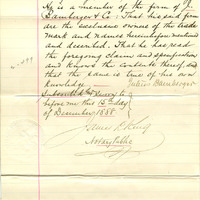 He is a member of the firm of J.
Bamberger & Co: That his said firm
are the exclusive owners of the trade
mark and names hereinbefore mentioned
and described. That he has read
the foregoing claim and specification
and knows the contents thereof, and
that the same is true of his own
knowledge — Julius Bamberger
Subscribed & sworn to
before me this 15th day
of December 1888.
James L. King
Notary Public